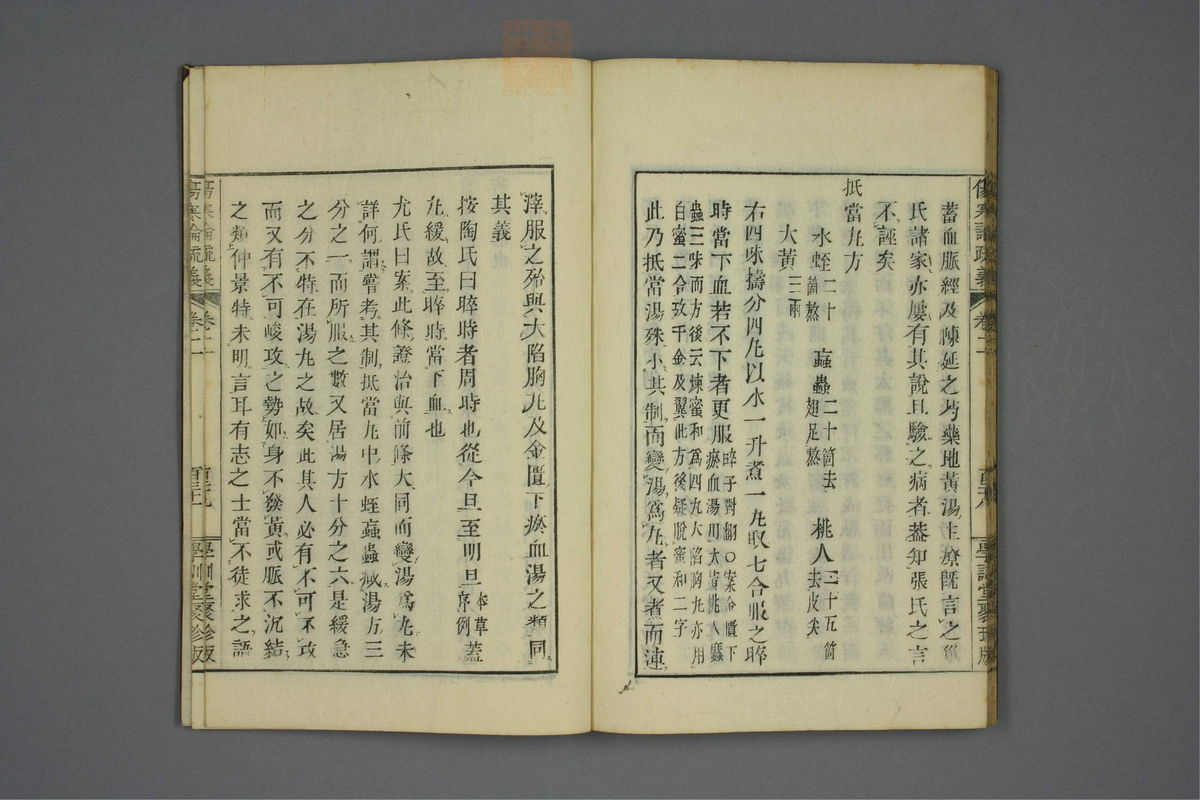 蓄血脈經及陳延之芍藥地黃湯主療旣言之巢
氏諸家亦屢有其說且驗之病者葢知張氏之言
不誣矣
抵當丸方
水蛭二十箇熬 䗪蟲二十箇去翅足熬 桃人二十五箇去皮尖
大黃三兩
右四味擣分四丸以水一升煮一丸取七合服之晬
時當下血若不下者更服晬子對翻○案金匱下瘀血湯用大黃桃人䗪
蟲三味而方後云煉蜜和爲四丸大陷胸丸亦用
白蜜二合攷千金及翼此方後疑脫蜜和二字
此乃抵當湯殊小其制而變湯爲丸者又煮而連
滓服之殆與大陷胸丸及金匱下瘀血湯之類同
其義
按陶氏曰晬時者周時也從今旦至明旦本草序例葢
丸緩故至晬時當下血也
尤氏曰案此條證治與前條大同而變湯爲丸未
詳何謂嘗考其制抵當丸中水蛭䖟蟲減湯方三
分之一而所服之數又居湯方十分之六是緩急
之分不特在湯丸之故矣此其人必有不可不攻
而又有不可峻攻之勢如身不發黃或脈不沉結
之類仲景特未明言耳有志之士當不徒求之語
傷寒論疏義 卷二
學訓堂聚珍版